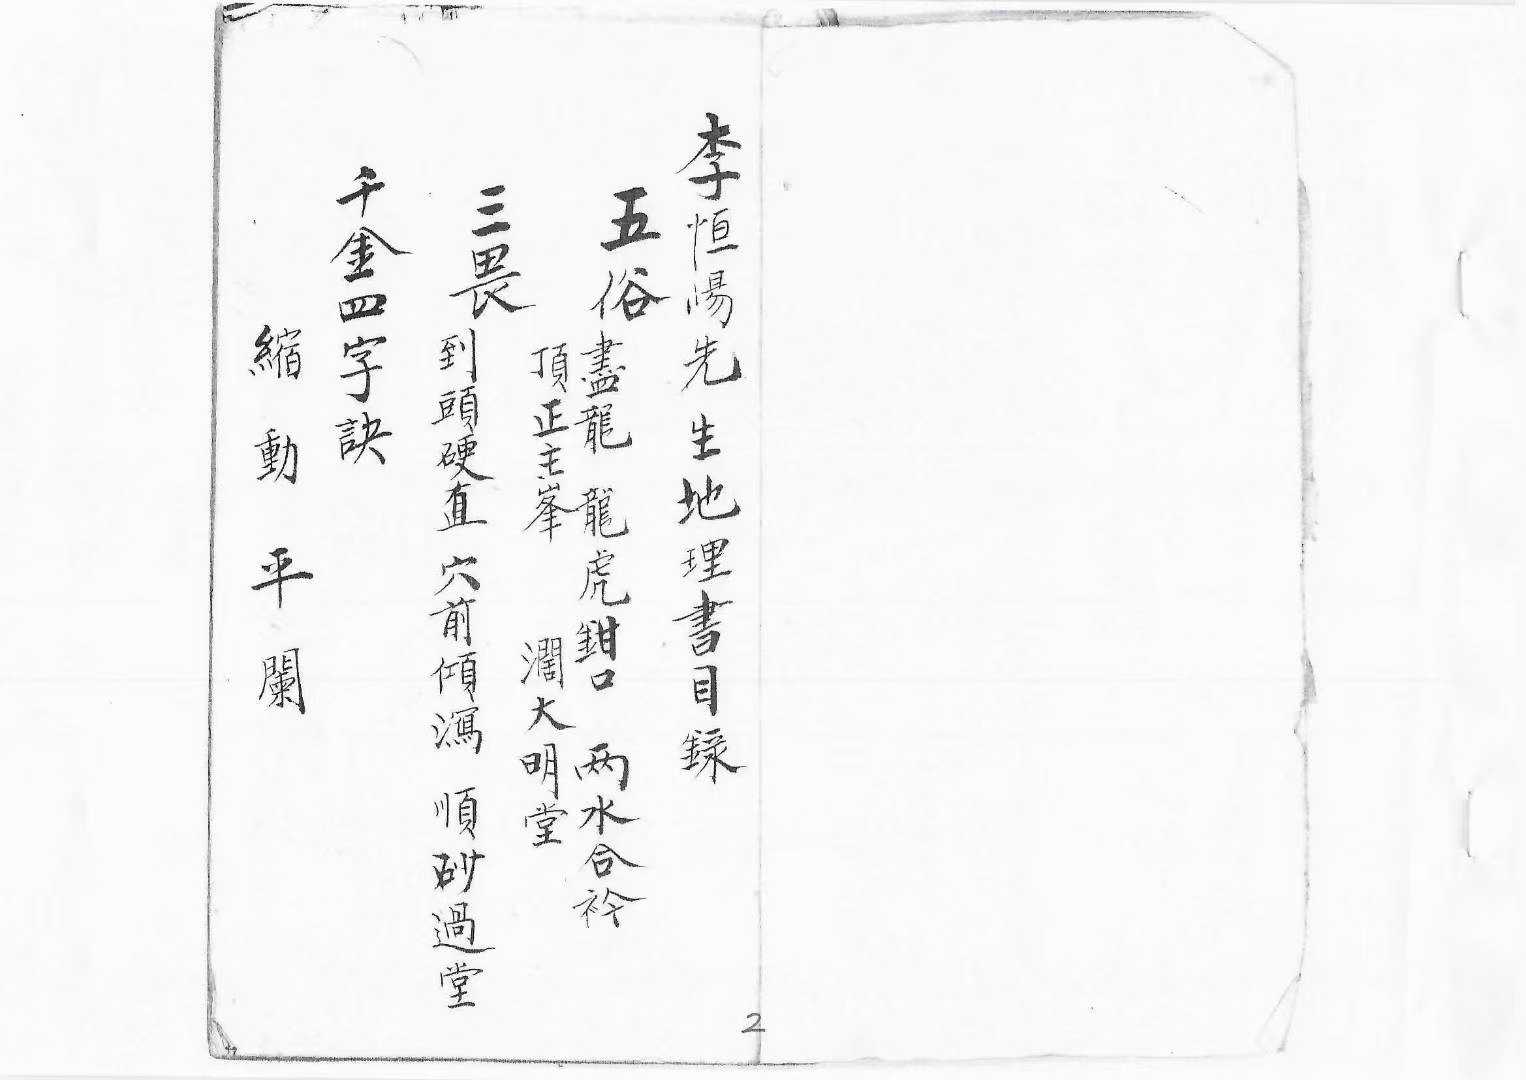 李恒陽先生地理書目録
五俗
盡龍 龍虎鉗口 两水合衿
頂正主峯 濶大明堂
三畏
到頭硬直 穴前傾瀉 順砂過堂
千金四字訣
縮動平闌
2